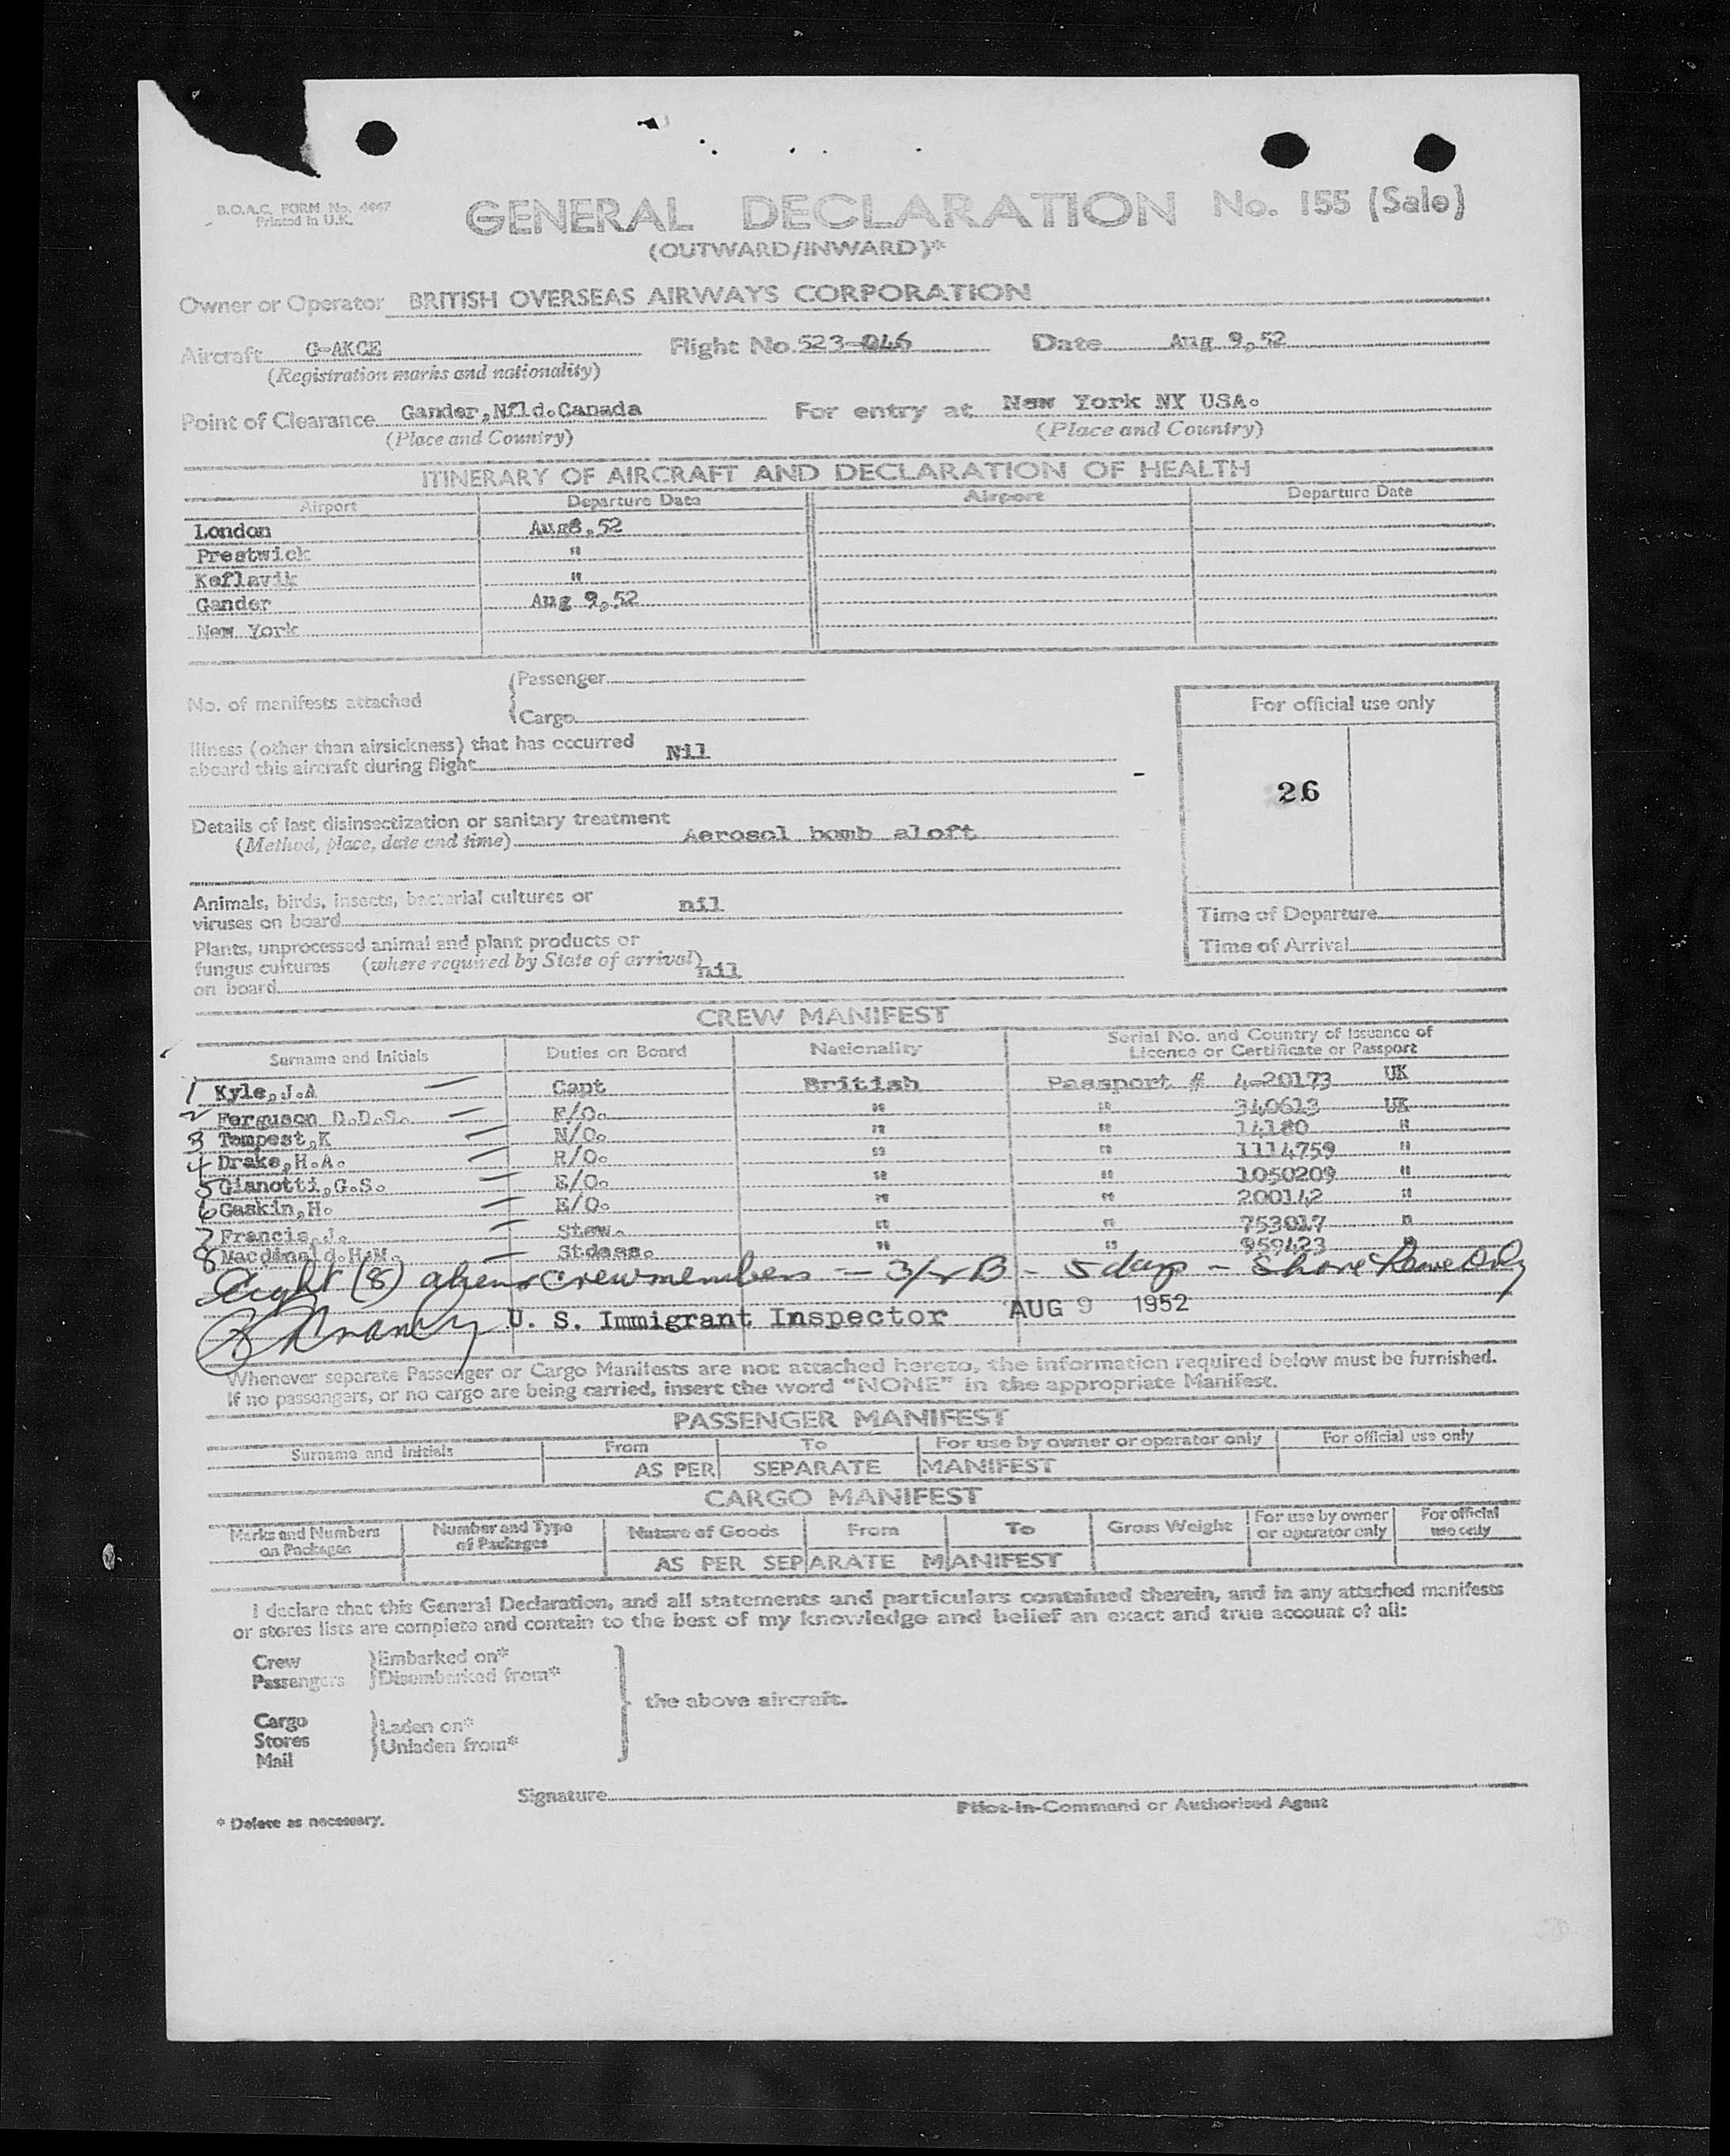 B.O.A.C. FORM No. 4447
Printed in U.K.
GENERAL DECLARATION No. 155 (Sale)
(OUTWARD/INWARD)*
Owner or Operator BRITISH OVERSEAS AIRWAYS CORPORATION
Aircraft G-AKCE Flight No. 523-046 Date Aug 9,52
(Registration marks and nationality)
Point of Clearance Gander,Nfld.Canada For entry at New York NY USA.
(Place and Country) (Place and Country)
ITINERARY OF AIRCRAFT AND DECLARATION OF HEALTH
Airport Departure Date Airport Departure Date
London Aug8,52
Prestwick "
Keflavik "
Gander Aug 9,52
New York
No. of manifests attached
(Passenger
(Cargo
For official use only
26
Time of Departure
Time of Arrival
Illness (other than airsickness) that has occurred
aboard this aircraft during flight Nil
Details of last disinsectization or sanitary treatment
(Method, place, date and time) Aerosol bomb aloft
Animals, birds, insects, bacterial cultures or
viruses on board nil
Plants, unprocessed animal and plant products or
fungus cultures (where required by State of arrival) nil
on board
CREW MANIFEST
Surname and Initials Duties on Board Nationality Serial No. and Country of Issuance of
Licence or Certificate or Passport
1 Kyle,J.A — Capt British Passport # 4-20173 UK
2 Ferguson D.D.S. — F/O. " " 340613 UK
3 Tempest,K — N/O. " " 14180 "
4 Drake,H.A. — R/O. " " 1114759 "
5 Gianotti,G.S. — E/O. " " 1050209 "
6 Gaskin,H. — E/O. " " 200142 "
7 Francis,J. — Stew. " " 753017 "
8 Macdinald.H.M. — Stdess. " " 959423 "
Eight (8) aliens crewmembers — 3/ B - 5 days - Shore Leave Only
U. S. Immigrant Inspector AUG 9 1952
Whenever separate Passenger or Cargo Manifests are not attached hereto, the information required below must be furnished.
If no passengers, or no cargo are being carried, insert the word “NONE” in the appropriate Manifest.
PASSENGER MANIFEST
Surname and Initials From To For use by owner or operator only For official use only
AS PER SEPARATE MANIFEST
CARGO MANIFEST
Marks and Numbers on Packages Number and Type of Packages Nature of Goods From To Gross Weight For use by owner or operator only For official use only
AS PER SEPARATE MANIFEST
I declare that this General Declaration, and all statements and particulars contained therein, and in any attached manifests
or stores lists are complete and contain to the best of my knowledge and belief an exact and true account of all:
Crew }Embarked on*
Passengers }Disembarked from*
the above aircraft.
Cargo }Laden on*
Stores }Unladen from*
Mail
Signature
Pilot-in-Command or Authorised Agent
* Delete as necessary.